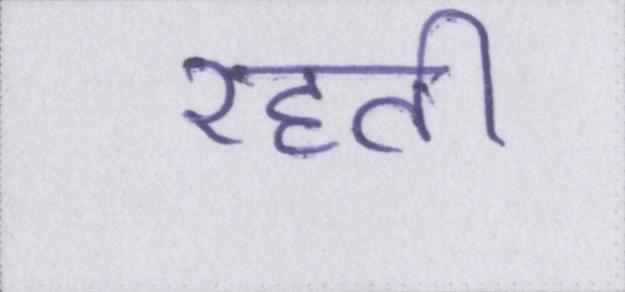 रहती